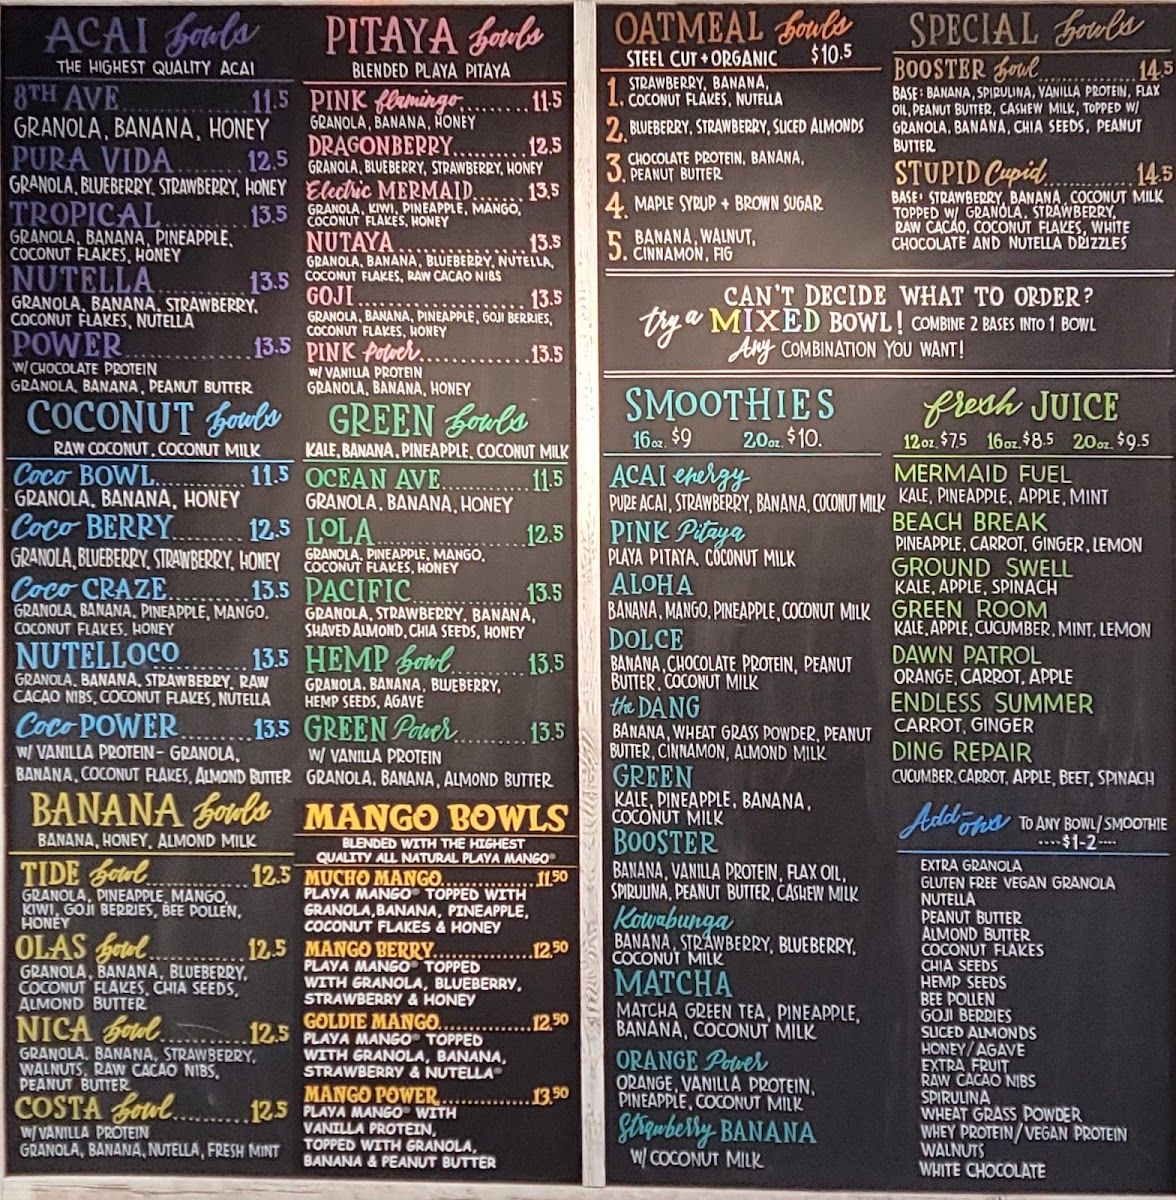 ACAI bowls
THE HIGHEST QUALITY ACAI
8TH AVE 11.5
GRANOLA, BANANA, HONEY
PURA VIDA 12.5
GRANOLA, BLUEBERRY, STRAWBERRY, HONEY
TROPICAL 13.5
GRANOLA, BANANA, PINEAPPLE,
COCONUT FLAKES, HONEY
NUTELLA 13.5
GRANOLA, BANANA, STRAWBERRY,
COCONUT FLAKES, NUTELLA
POWER 13.5
W/CHOCOLATE PROTEIN
GRANOLA, BANANA, PEANUT BUTTER
COCONUT bowls
RAW COCONUT, COCONUT MILK
Coco BOWL 11.5
GRANOLA, BANANA, HONEY
Coco BERRY 12.5
GRANOLA, BLUEBERRY, STRAWBERRY, HONEY
Coco CRAZE 13.5
GRANOLA, BANANA, PINEAPPLE, MANGO,
COCONUT FLAKES, HONEY
NUTELLOCO 13.5
GRANOLA, BANANA, STRAWBERRY, RAW
CACAO NIBS, COCONUT FLAKES, NUTELLA
Coco POWER 13.5
W/ VANILLA PROTEIN- GRANOLA,
BANANA, COCONUT FLAKES, ALMOND BUTTER
BANANA bowls
BANANA, HONEY, ALMOND MILK
TIDE bowl 12.5
GRANOLA, PINEAPPLE, MANGO,
KIWI, GOJI BERRIES, BEE POLLEN,
HONEY
OLAS bowl 12.5
GRANOLA, BANANA, BLUEBERRY,
COCONUT FLAKES, CHIA SEEDS,
ALMOND BUTTER
NICA bowl 12.5
GRANOLA, BANANA, STRAWBERRY,
WALNUTS, RAW CACAO NIBS,
PEANUT BUTTER
COSTA bowl 12.5
W/VANILLA PROTEIN
GRANOLA, BANANA, NUTELLA, FRESH MINT
PITAYA bowls
BLENDED PLAYA PITAYA
PINK flamingo 11.5
GRANOLA, BANANA, HONEY
DRAGONBERRY 12.5
GRANOLA, BLUEBERRY, STRAWBERRY, HONEY
Electric MERMAID 13.5
GRANOLA, KIWI, PINEAPPLE, MANGO,
COCONUT FLAKES, HONEY
NUTAYA 13.5
GRANOLA, BANANA, BLUEBERRY, NUTELLA,
COCONUT FLAKES, RAW CACAO NIBS
GOJI 13.5
GRANOLA, BANANA, PINEAPPLE, GOJI BERRIES,
COCONUT FLAKES, HONEY
PINK Power 13.5
W/ VANILLA PROTEIN
GRANOLA, BANANA, HONEY
GREEN bowls
KALE, BANANA, PINEAPPLE, COCONUT MILK
OCEAN AVE 11.5
GRANOLA, BANANA, HONEY
LOLA 12.5
GRANOLA, PINEAPPLE, MANGO,
COCONUT FLAKES, HONEY
PACIFIC 13.5
GRANOLA, STRAWBERRY, BANANA,
SHAVED ALMOND, CHIA SEEDS, HONEY
HEMP bowl 13.5
GRANOLA, BANANA, BLUEBERRY,
HEMP SEEDS, AGAVE
GREEN Power 13.5
W/ VANILLA PROTEIN
GRANOLA, BANANA, ALMOND BUTTER
MANGO BOWLS
BLENDED WITH THE HIGHEST
QUALITY ALL NATURAL PLAYA MANGO®
MUCHO MANGO 11.50
PLAYA MANGO® TOPPED WITH
GRANOLA, BANANA, PINEAPPLE,
COCONUT FLAKES & HONEY
MANGO BERRY 12.50
PLAYA MANGO® TOPPED
WITH GRANOLA, BLUEBERRY,
STRAWBERRY & HONEY
GOLDIE MANGO 12.50
PLAYA MANGO® TOPPED
WITH GRANOLA, BANANA,
STRAWBERRY & NUTELLA®
MANGO POWER 13.50
PLAYA MANGO® WITH
VANILLA PROTEIN,
TOPPED WITH GRANOLA,
BANANA & PEANUT BUTTER
OATMEAL bowls
STEEL CUT + ORGANIC $10.5
1. STRAWBERRY, BANANA,
COCONUT FLAKES, NUTELLA
2. BLUEBERRY, STRAWBERRY, SLICED ALMONDS
3. CHOCOLATE PROTEIN, BANANA,
PEANUT BUTTER
4. MAPLE SYRUP + BROWN SUGAR
5. BANANA, WALNUT,
CINNAMON, FIG
SPECIAL bowls
BOOSTER bowl 14.5
BASE: BANANA, SPIRULINA, VANILLA PROTEIN, FLAX
OIL, PEANUT BUTTER, CASHEW MILK, TOPPED W/
GRANOLA, BANANA, CHIA SEEDS, PEANUT
BUTTER
STUPID Cupid 14.5
BASE: STRAWBERRY, BANANA, COCONUT MILK
TOPPED W/ GRANOLA, STRAWBERRY,
RAW CACAO, COCONUT FLAKES, WHITE
CHOCOLATE AND NUTELLA DRIZZLES
CAN'T DECIDE WHAT TO ORDER?
try a MIXED BOWL! COMBINE 2 BASES INTO 1 BOWL
Any COMBINATION YOU WANT!
SMOOTHIES
16oz. $9 20oz. $10.
ACAI energy
PURE ACAI, STRAWBERRY, BANANA, COCONUT MILK
PINK Pitaya
PLAYA PITAYA, COCONUT MILK
ALOHA
BANANA, MANGO, PINEAPPLE, COCONUT MILK
DOLCE
BANANA, CHOCOLATE PROTEIN, PEANUT
BUTTER, COCONUT MILK
the DANG
BANANA, WHEAT GRASS POWDER, PEANUT
BUTTER, CINNAMON, ALMOND MILK
GREEN
KALE, PINEAPPLE, BANANA,
COCONUT MILK
BOOSTER
BANANA, VANILLA PROTEIN, FLAX OIL,
SPIRULINA, PEANUT BUTTER, CASHEW MILK
Kowabunga
BANANA, STRAWBERRY, BLUEBERRY,
COCONUT MILK
MATCHA
MATCHA GREEN TEA, PINEAPPLE,
BANANA, COCONUT MILK
ORANGE Power
ORANGE, VANILLA PROTEIN,
PINEAPPLE, COCONUT MILK
Strawberry BANANA
W/ COCONUT MILK
fresh JUICE
12oz. $7.5 16oz. $8.5 20oz. $9.5
MERMAID FUEL
KALE, PINEAPPLE, APPLE, MINT
BEACH BREAK
PINEAPPLE, CARROT, GINGER, LEMON
GROUND SWELL
KALE, APPLE, SPINACH
GREEN ROOM
KALE, APPLE, CUCUMBER, MINT, LEMON
DAWN PATROL
ORANGE, CARROT, APPLE
ENDLESS SUMMER
CARROT, GINGER
DING REPAIR
CUCUMBER, CARROT, APPLE, BEET, SPINACH
Add-ons TO ANY BOWL/SMOOTHIE
----$1-2----
EXTRA GRANOLA
GLUTEN FREE VEGAN GRANOLA
NUTELLA
PEANUT BUTTER
ALMOND BUTTER
COCONUT FLAKES
CHIA SEEDS
HEMP SEEDS
BEE POLLEN
GOJI BERRIES
SLICED ALMONDS
HONEY/AGAVE
EXTRA FRUIT
RAW CACAO NIBS
SPIRULINA
WHEAT GRASS POWDER
WHEY PROTEIN/VEGAN PROTEIN
WALNUTS
WHITE CHOCOLATE